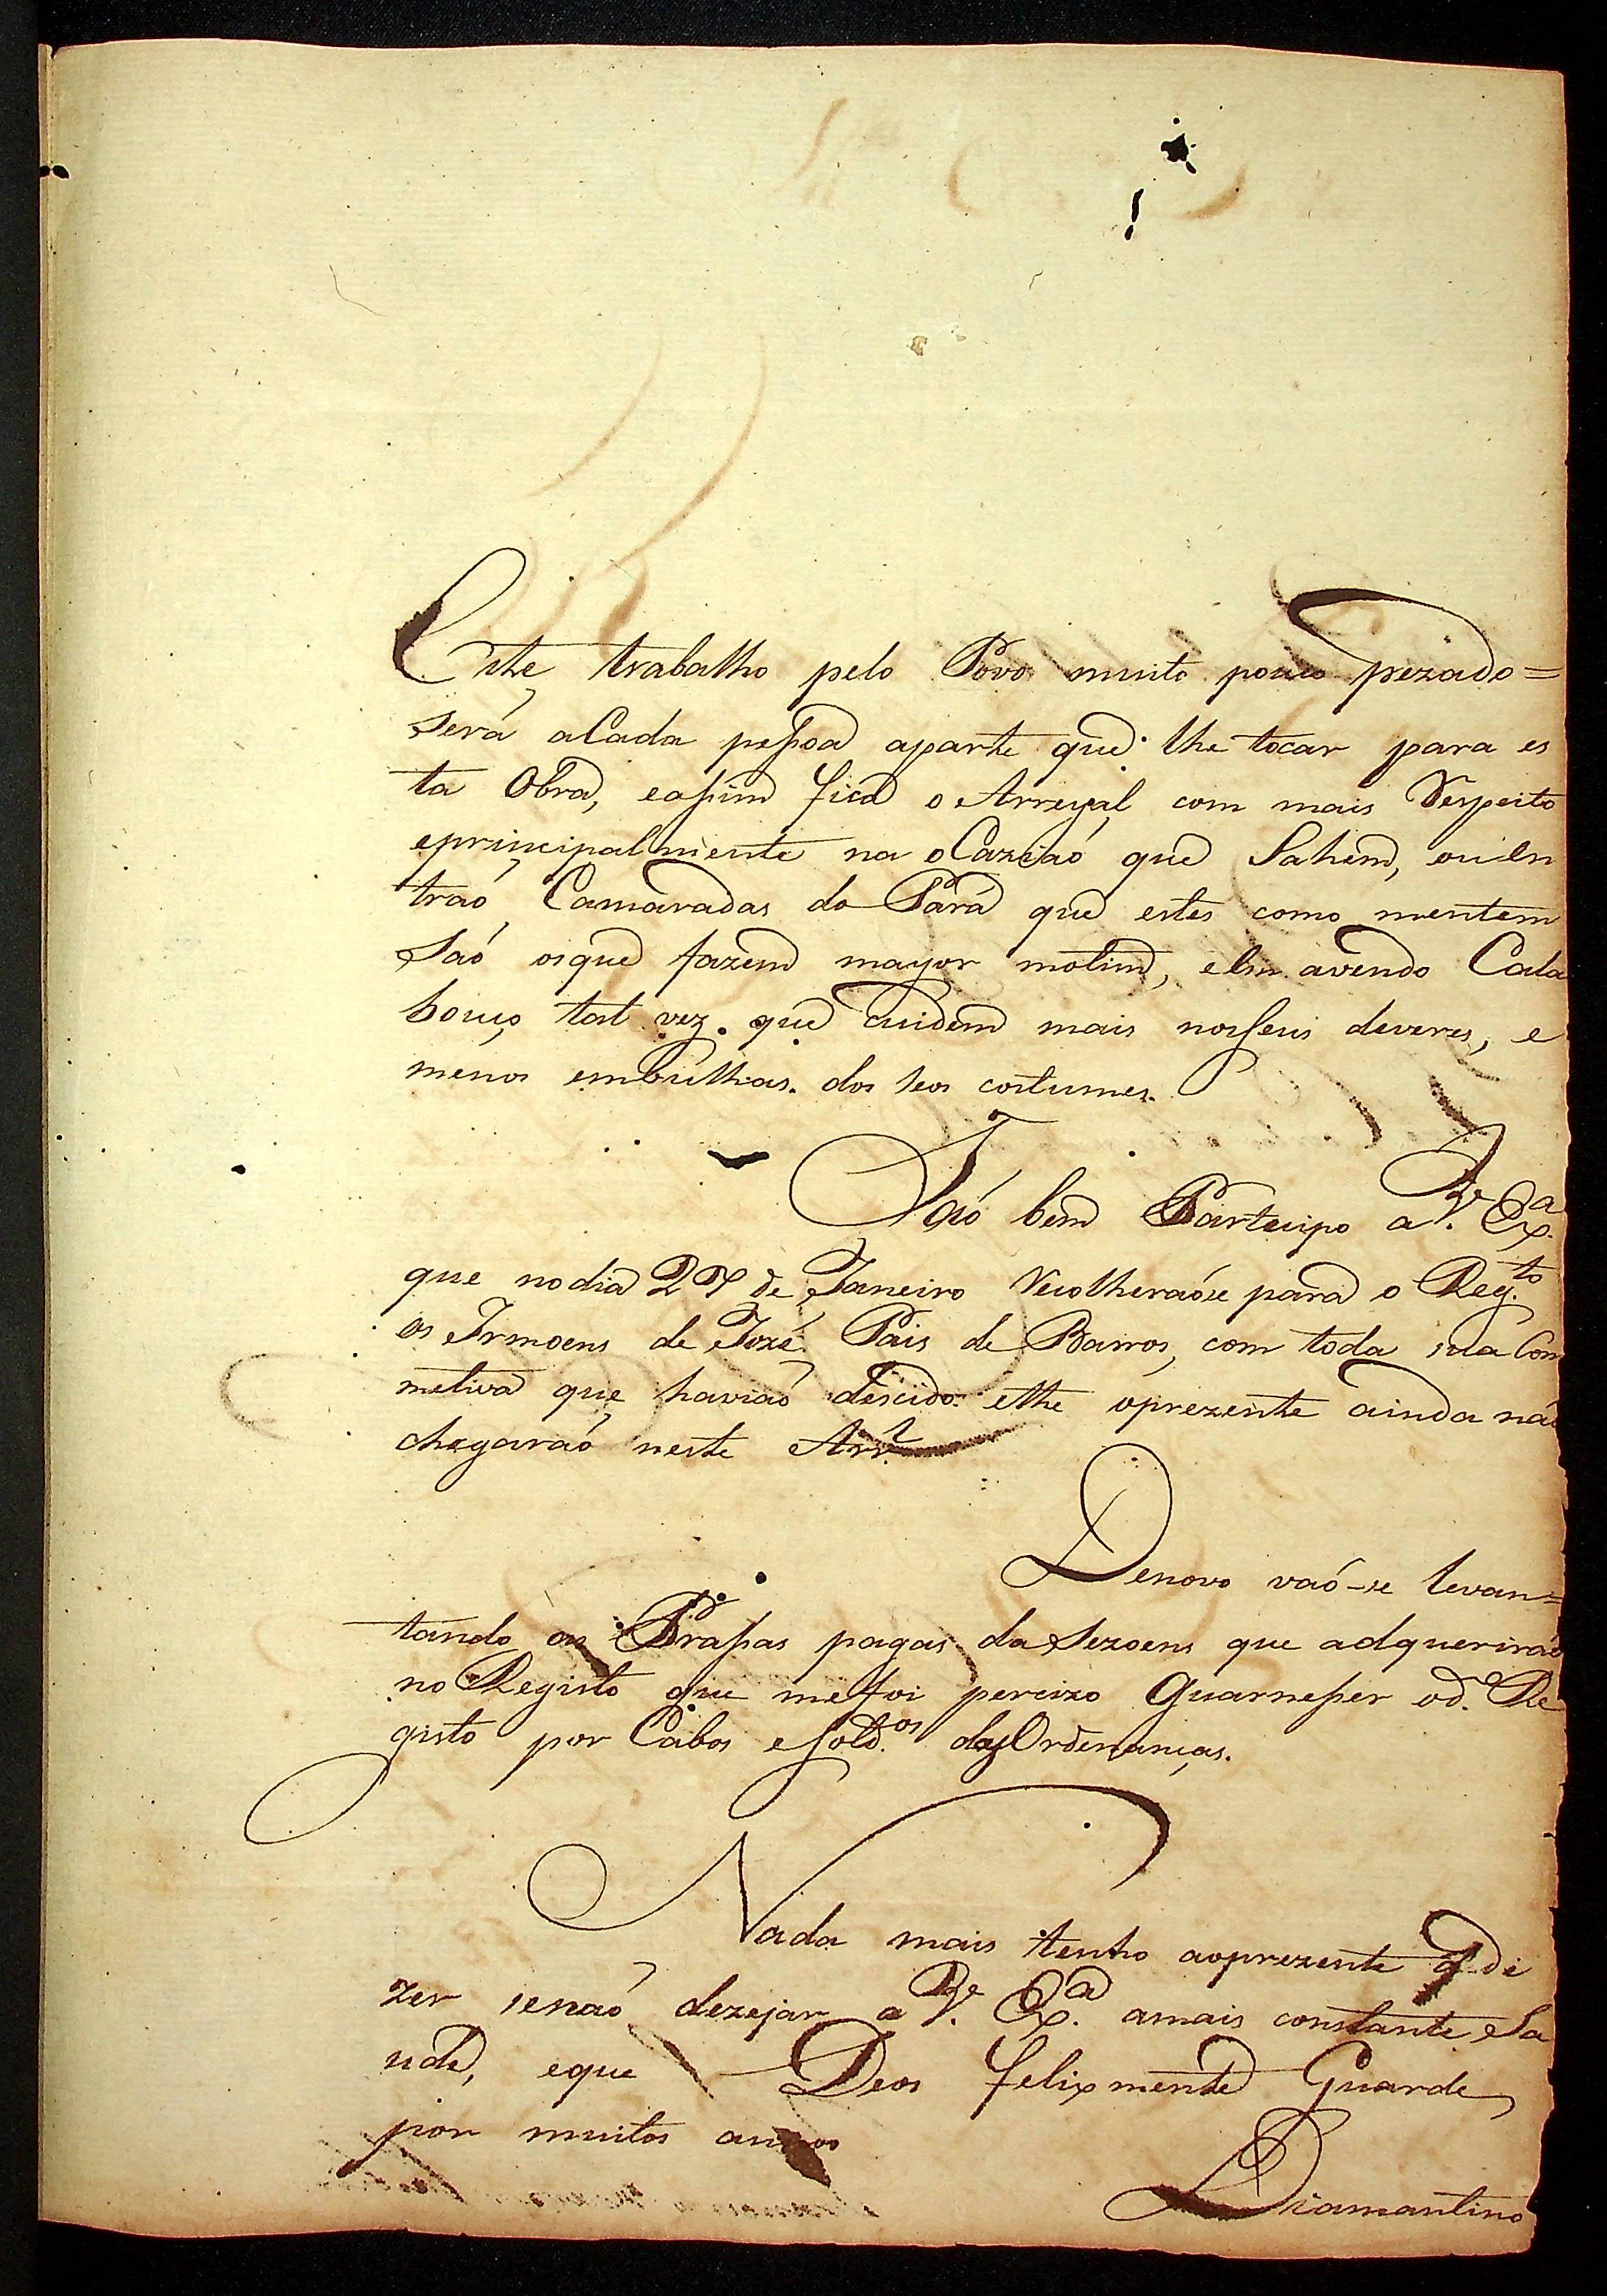 Este trabalho pelo Povo muito pouco pezado=
Será aCada peſsoa aparte que lhe tocar para es
ta Obra, eaſsim fica o Arreyal com mais Respeito
eprincipalmente na oCaziaõ que Sahem, ouEn
traõ Camaradas do Pará que estes como mentem
Saõ osque fazem mayor motim, eEm avendo Cala
bouço tal vez que cuidem mais nosSeus deveres, e
menos embulhas dos seos costumes.
Taõ bem Participo a V.ª Ex.ª
que nodia 27 de Janeiro Recolheraõse para o Reg.to
os Irmoens de Jozé Pais de Barros, com toda sua Com
metiva que haviaõ descido ethe oprezente ainda naõ
chegaraõ neste Arr.l
Denovo vaõ-se levan=
tando as Praſsas pagas da Sezoens que adqueriraõ
no Registo que mefoi percizo Guarneſser od.o Re
gisto por Cabos eSold.os das Ordenanças.
Nada mais tenho aoprezente q̃ di
zer senaõ dezejar a V.ª Ex.ª amais constante Sa
ude, eque Deos felixmente Guarde
por muitos annos
Diamantino